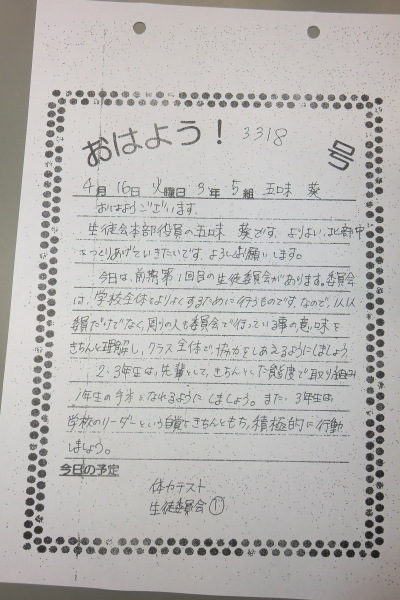 おはよう! 3318 号
4月 16日 火曜日 3年 5組 五味 葵
おはようございます。
生徒会本部役員の五味 葵です。よりよい北部中
をつくりあげていきたいです。よろしくお願いします。
今日は、前期第1回目の生徒委員会があります。委員会
は、学校全体をよりよくするために行うものです。なので、
委員だけでなく、周りの人も委員会で行っている事の意味を
きちんと理解し、クラス全体で協力をしあえるようにしましょう。
2・3年生は、先輩として、きちんとした態度で取り組み
1年生の手本となれるようにしましょう。また、3年生は、
学校のリーダーという自覚をきちんともち、積極的に行動
しましょう。
今日の予定
体力テスト
生徒委員会①